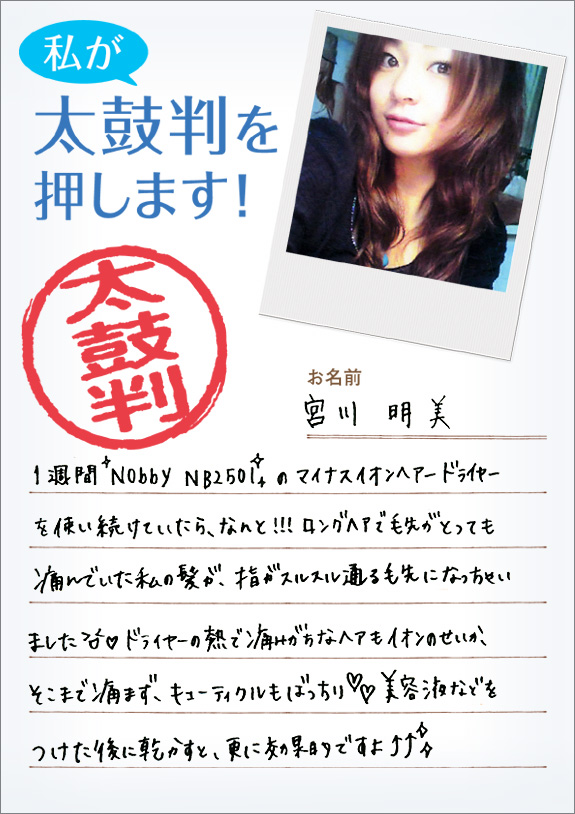 私が
太鼓判を
押します!
太鼓判
お名前
宮川 明美
1週間"Nobby NB2501"のマイナスイオンヘアードライヤー
を使い続けていたら、なんと!!!ロングヘアで毛先がとっても
痛んでいた私の髪が、指がスルスル通る毛先になっちゃい
ました♡ドライヤーの熱で痛みがちなヘアもイオンのせいか、
そこまで痛まず、キューティクルもばっちり♡♡美容液などを
つけた後に乾かすと、更に効果的ですよ↑↑